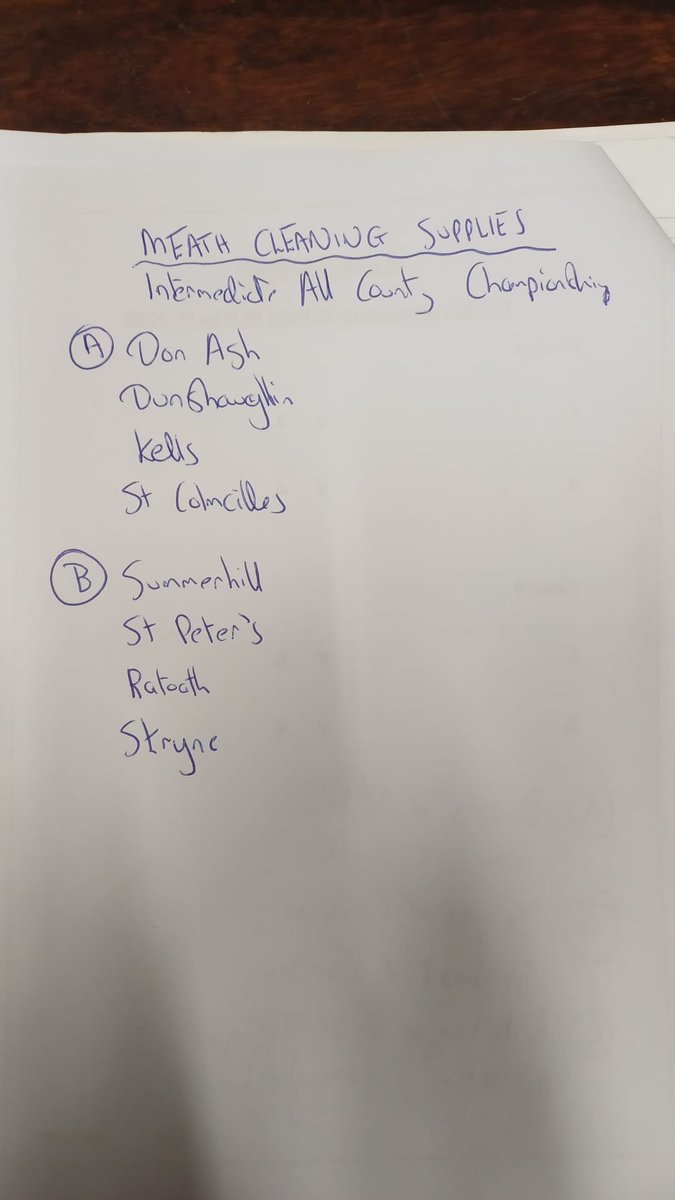 MEATH CLEANING SUPPLIES
Intermediate All County Championship
A Don Ash
Dunshaughlin
Kells
St Colmcilles
B Summerhill
St Peter's
Ratoath
Skryne